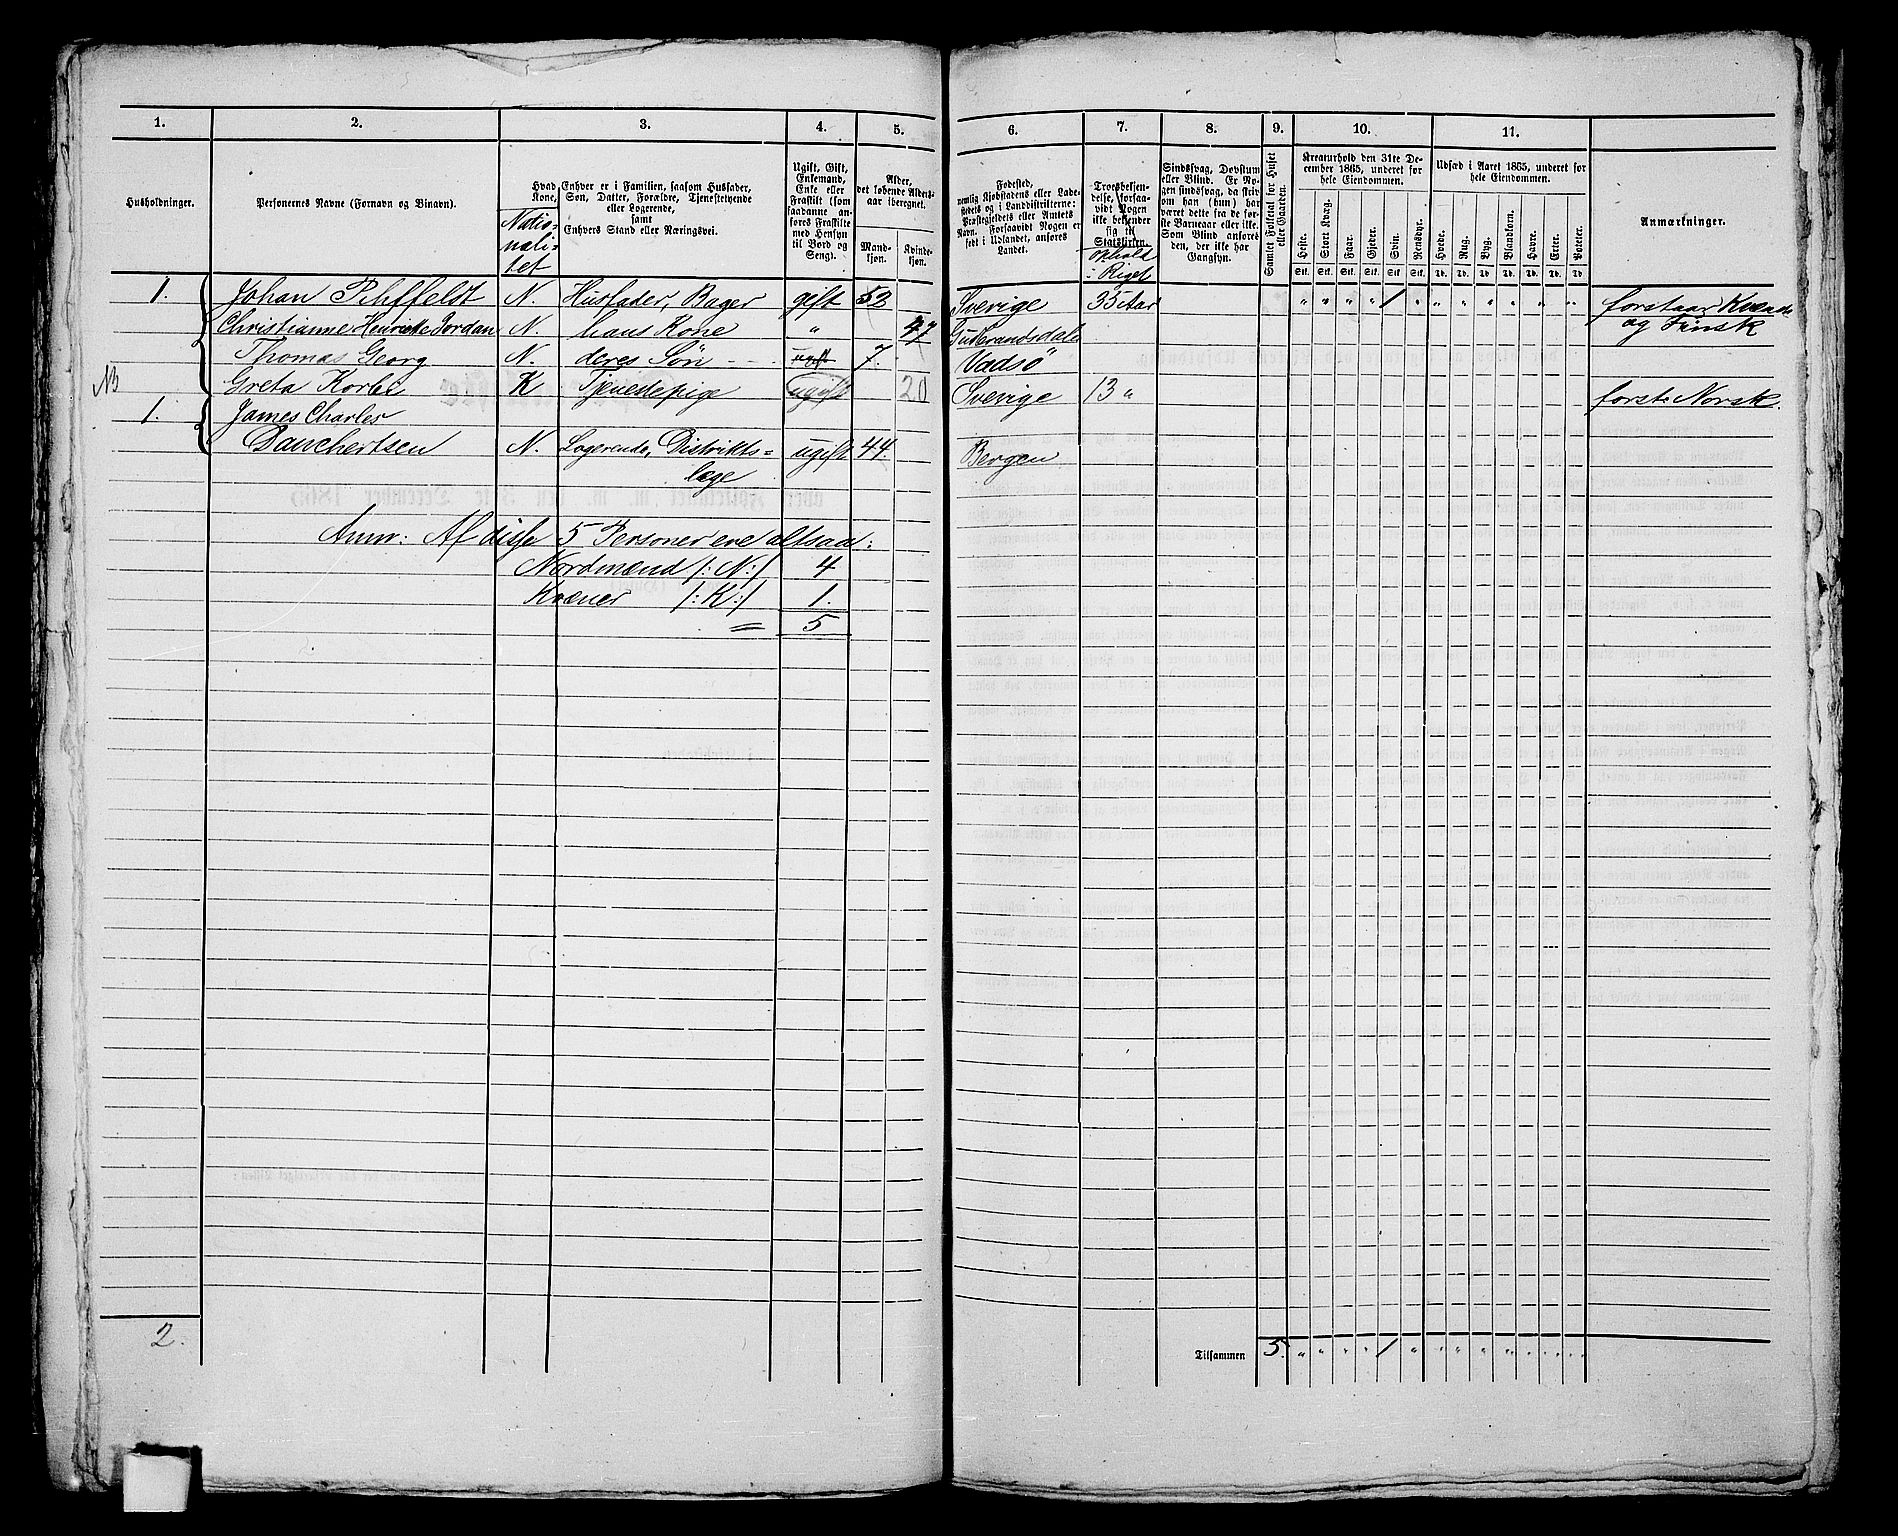 1. 2. 3. 4. 5. 6. 7. 8. 9. 10. 11.
Husholdninger.
Personernes Navne (Fornavn og Binavn).
Hvad Enhver er i Familien, saasom Husfader,
Kone, Søn, Datter, Forældre, Tjenestetyende
eller Logerende,
samt
Enhvers Stand eller Næringsvei.
Natio-
nali-
tet
Ugift, Gift,
Enkemand,
Enke eller
Fraskilt (som
saadanne an-
føres Fraskilte
med Hensyn
til Bord og
Seng).
Alder,
det løbende Alders-
aar iberegnet.
Mand-
kjøn.
Kvinde-
kjøn.
Fødested,
nemlig Kjøbstadens eller Lade-
stedets og i Landdistrikterne:
Præstegjeldets eller Amtets
Navn. Forsaavidt Nogen er
født i Udlandet, anføres
Landet.
Troesbekjen-
delse, forsaa-
vidt Nogen
ikke bekjender
sig til
Statskirken.
Ophold
i Riget
Sindssvag, Døvstum
eller Blind. Er No-
gen sindssvag, da skriv
om han (hun) har
været dette fra de før-
ste Barneaar eller ikke.
Som Blind anføres
den, der ikke har
Gangsyn.
Samlet Folketal for Huset
eller Gaarden.
Kreaturhold den 31te De-
cember 1865, underet for
hele Eiendommen.
Heste. Stort Kvæg. Faar. Gjeder. Svin. Rensdyr.
Stk. Stk. Stk. Stk. Stk. Stk.
Udsæd i Aaret 1865, underet for
hele Eiendommen.
Hvede. Rug. Byg. Blandkorn. Havre. Erter. Poteter.
Td. Td. Td. Td. Td. Td. Td.
Anmærkninger.
1. Johan N. Husfader, Bager gift 53 Sverige 35 Aar " " " " 1 " " " " " " " " forstaar Kvensk
og Finsk
Christianne Henriette Jordan N. hans Kone " 47 Gudbrandsdalen
Thomas Georg N. deres Søn ugift 7. Vadsö
NB Greta K Tjenestepige ugift 20 Sverige 13 " forst. Norsk.
1. James Charles
Danchertsen N. Logerende, Distrikts= ugift 44. Bergen
læge
Anm: Af disse 5 Personer ere altsaa:
Nordmænd /:N:/ 4
Kvæner /:K:/ 1.
= 5
2. Tilsammen 5. " " " " 1 " " " " " " " "